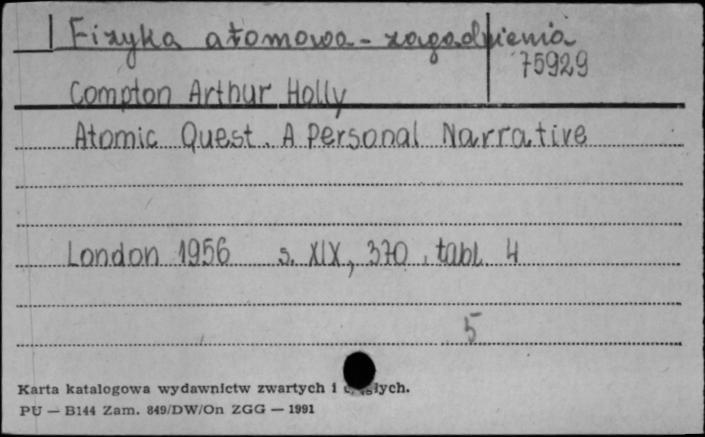 Fizyka atomowa - zagadnienia
75929
Compton Arthur Holly
Atomic Quest. A Personal Narrative
London 1956 s. XIX, 370, tabl. 4
5
Karta katalogowa wydawnictw zwartych i
PU — B144 Zam. 849/DW/On ZGG — 1991